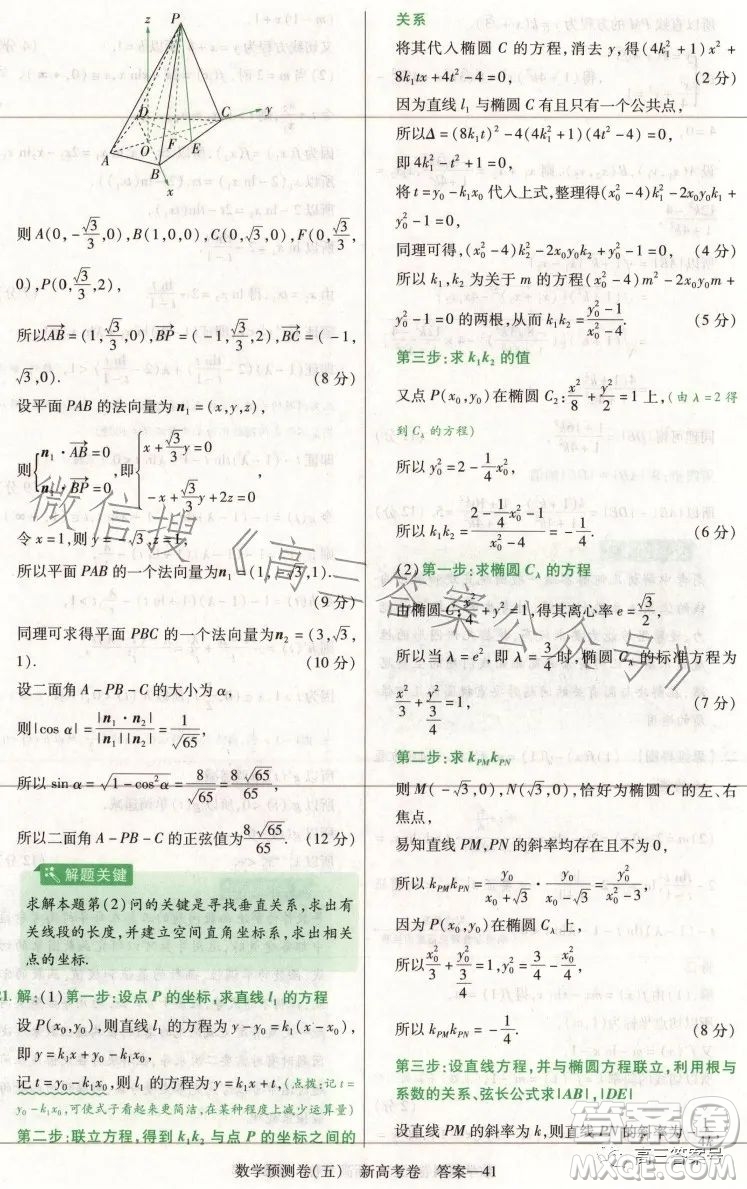 z
P
D
C
y
A
O
F
E
B
x
则 A(0,-√3/3,0),B(1,0,0),C(0,√3,0),F(0,√3/3,
0),P(0,√3/3,2),
所以AB→=(1,√3/3,0),BP→=(-1,√3/3,2),BC→=(-1,
√3,0). (8分)
设平面 PAB 的法向量为 n₁=(x,y,z),
则{n₁·AB→=0 n₁·BP→=0,即{x+√3/3y=0 -x+√3/3y+2z=0
令 x=1,则 y=-√3,z=1,
所以平面 PAB 的一个法向量为 n₁=(1,-√3,1).
(9分)
同理可求得平面 PBC 的一个法向量为 n₂=(3,√3,
1). (10分)
设二面角 A-PB-C 的大小为 α,
则|cos α|=|n₁·n₂|/|n₁||n₂|=1/√65,
所以 sin α=√1-cos²α=8/√65=8√65/65,
所以二面角 A-PB-C 的正弦值为8√65/65. (12分)
解题关键
求解本题第(2)问的关键是寻找垂直关系,求出有
关线段的长度,并建立空间直角坐标系,求出相关
点的坐标.
21. 解:(1)第一步:设点 P 的坐标,求直线 l₁ 的方程
设 P(x₀,y₀),则直线 l₁ 的方程为 y-y₀=k₁(x-x₀),
即 y=k₁x+y₀-k₁x₀,
记 t=y₀-k₁x₀,则 l₁ 的方程为 y=k₁x+t,(点拨:记 t=
y₀-k₁x₀,可使式子看起来更简洁,在某种程度上减少运算量)
第二步:联立方程,得到 k₁k₂ 与点 P 的坐标之间的
关系
将其代人椭圆 C 的方程,消去 y,得(4k₁²+1)x²+
8k₁tx+4t²-4=0, (2分)
因为直线 l₁ 与椭圆 C 有且只有一个公共点,
所以Δ=(8k₁t)²-4(4k₁²+1)(4t²-4)=0,
即 4k₁²-t²+1=0,
将 t=y₀-k₁x₀ 代入上式,整理得(x₀²-4)k₁²-2x₀y₀k₁+
y₀²-1=0,
同理可得,(x₀²-4)k₂²-2x₀y₀k₂+y₀²-1=0, (4分)
所以 k₁,k₂ 为关于 m 的方程(x₀²-4)m²-2x₀y₀m+
y₀²-1=0 的两根,从而 k₁k₂=y₀²-1/x₀²-4. (5分)
第三步:求 k₁k₂ 的值
又点 P(x₀,y₀)在椭圆 C₂:x²/8+y²/2=1 上,(由 λ=2 得
到 C_λ 的方程)
所以 y₀²=2-1/4x₀²,
所以 k₁k₂=2-1/4x₀²-1/x₀²-4=-1/4. (6分)
(2)第一步:求椭圆 C_λ 的方程
由椭圆 C:x²/4+y²=1,得其离心率 e=√3/2,
所以当 λ=e²,即 λ=3/4时,椭圆 C_λ 的标准方程为
x²/3+y²/3/4=1. (7分)
第二步:求 k_PM k_PN
则 M(-√3,0),N(√3,0),恰好为椭圆 C 的左、右
焦点,
易知直线 PM,PN 的斜率均存在且不为 0,
所以 k_PM k_PN=y₀/x₀+√3·y₀/x₀-√3=y₀²/x₀²-3,
因为 P(x₀,y₀)在椭圆 C_λ 上,
所以x₀²/3+y₀²/3/4=1,
所以 k_PM k_PN=-1/4. (8分)
第三步:设直线方程,并与椭圆方程联立,利用根与
系数的关系、弦长公式求|AB|,|DE|
设直线 PM 的斜率为 k,则直线 PN 的斜率为-1/4k
数学预测卷(五) 新高考卷 答案—41
微信搜《高三答案公众号》
答案圈
高三答案号